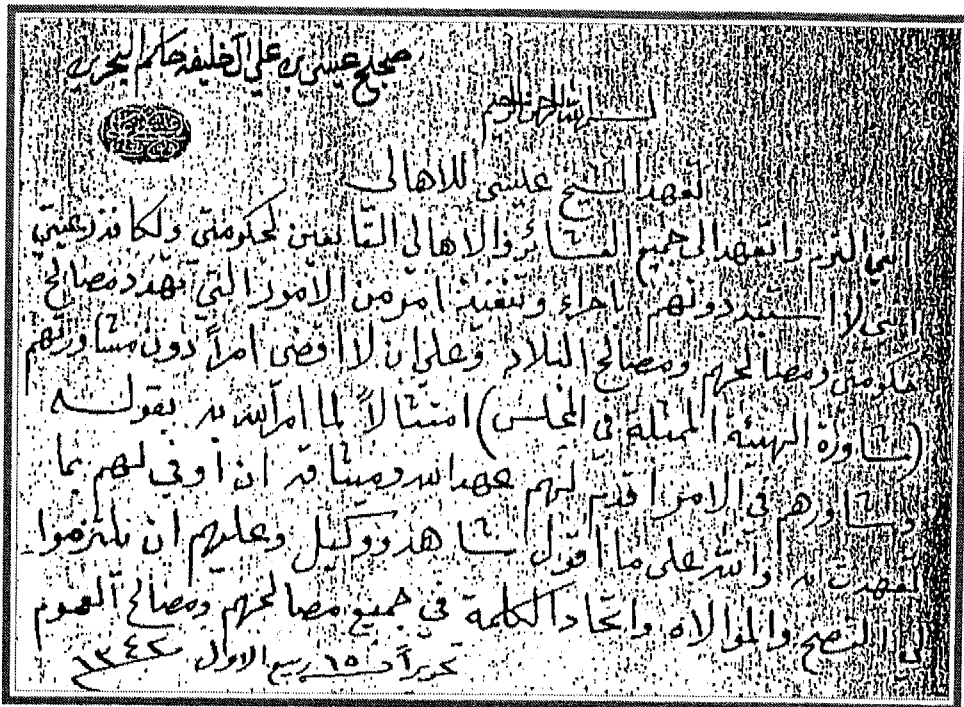 صحيح عيسى بن علي آل خليفة حاكم البحرين
بسم الله الرحمن الرحيم
تعهد الشيخ عيسى للاهالي
اني التزم واتعهد الى جميع العشائر والاهالي التابعين لحكومتي ولكافة رعيتي
انني لا استبد دونهم باجراء وتنفيذ امر من الامور التي تهدد مصالح
حكومتي ومصالحهم ومصالح البلاد وعلى ان لا اقضي امراً دون مشاورتهم
(مشاورة الهيئة الممثلة في المجلس) امتثالاً لما امر الله به بقوله
وشاورهم في الامر اقدم لهم عهد الله وميثاقه ان أوفي لهم بما
تعهدت به والله على ما اقول شاهد ووكيل وعليهم ان يلتزموا
لي النصح والموالاه واتحاد الكلمة في جميع مصالحهم ومصالح العموم
تحريراً في ١٥ ربيع الاول ١٣٤٢